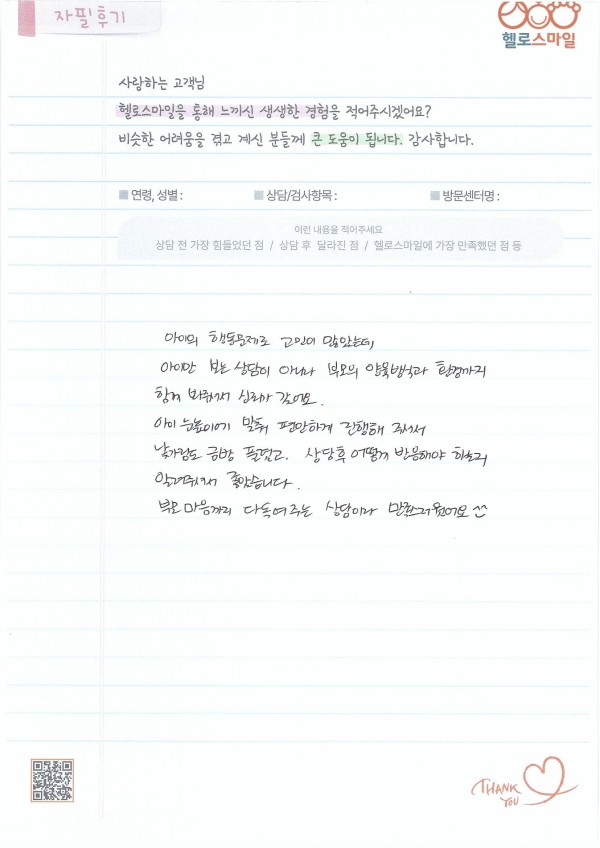 자필후기
헬로스마일
사랑하는 고객님
헬로스마일을 통해 느끼신 생생한 경험을 적어주시겠어요?
비슷한 어려움을 겪고 계신 분들께 큰 도움이 됩니다. 감사합니다.
연령, 성별 :
상담/검사항목 :
방문센터명 :
이런 내용을 적어주세요
상담 전 가장 힘들었던 점 / 상담 후 달라진 점 / 헬로스마일에 가장 만족했던 점 등
아이의 행동문제로 고민이 많았는데,
아이만 보는 상담이 아니라 부모의 양육방식과 환경까지
함께 봐주셔서 신뢰가 갔어요.
아이 눈높이에 맞춰 편안하게 진행해 주셔서
낯가림도 금방 풀렸고. 상담후 어떻게 반응해야 하는지
알려주셔서 좋았습니다.
부모 마음까지 다독여주는 상담이라 만족스러웠어요 ^^
THANK YOU